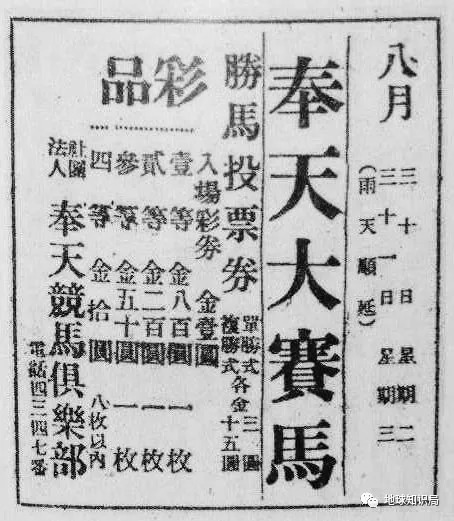 八月
三十日 星期二
三十一日 星期三
(雨天順延)
奉天大賽馬
勝馬投票券
單勝式 三圓
複勝式各金十五圓
彩品
入場彩券 金壹圓
壹等 金八百圓 一枚
貳等 金二百圓 一枚
參等 金五十圓 一枚
四等 金拾圓 八枚以內
社團法人 奉天競馬俱樂部
電話四三四七番
地球知识局